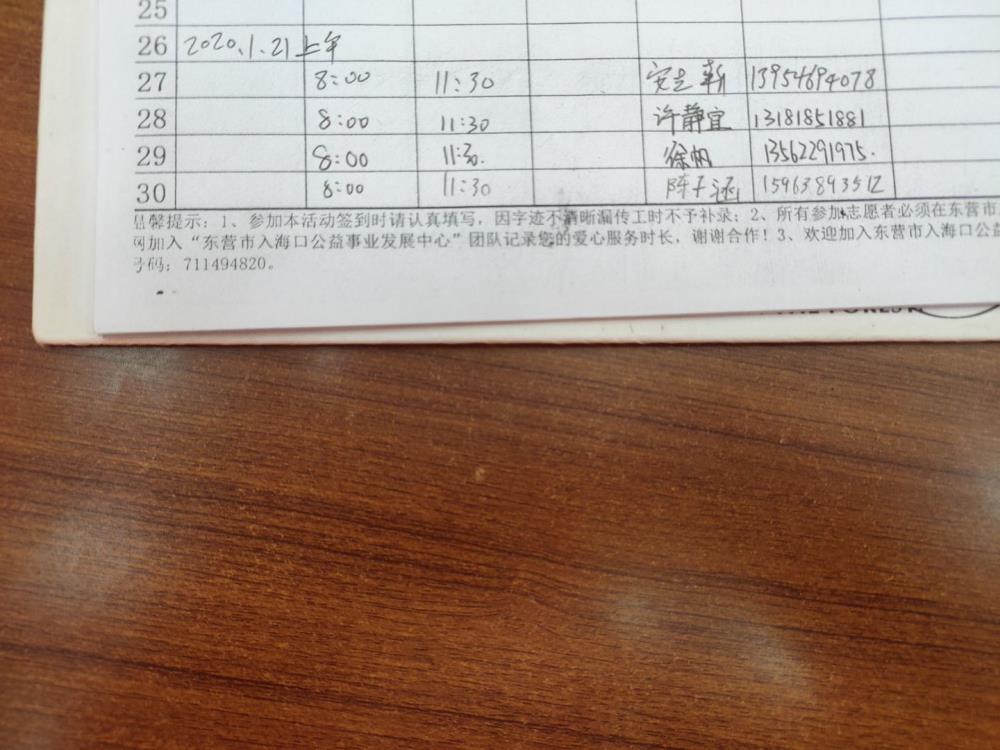 25
26 2020.1.21上午
27 8:00 11:30 安志新 13954694078
28 8:00 11:30 许静宜 13181851881
29 8:00 11:30. 徐帆 13562291975.
30 8:00 11:30 陈子涵 15963893512
温馨提示：1、参加本活动签到时请认真填写，因字迹不清晰漏传工时不予补录；2、所有参加志愿者必须在东营市
网加入“东营市入海口公益事业发展中心”团队记录您的爱心服务时长，谢谢合作！3、欢迎加入东营市入海口公益
号码：711494820。